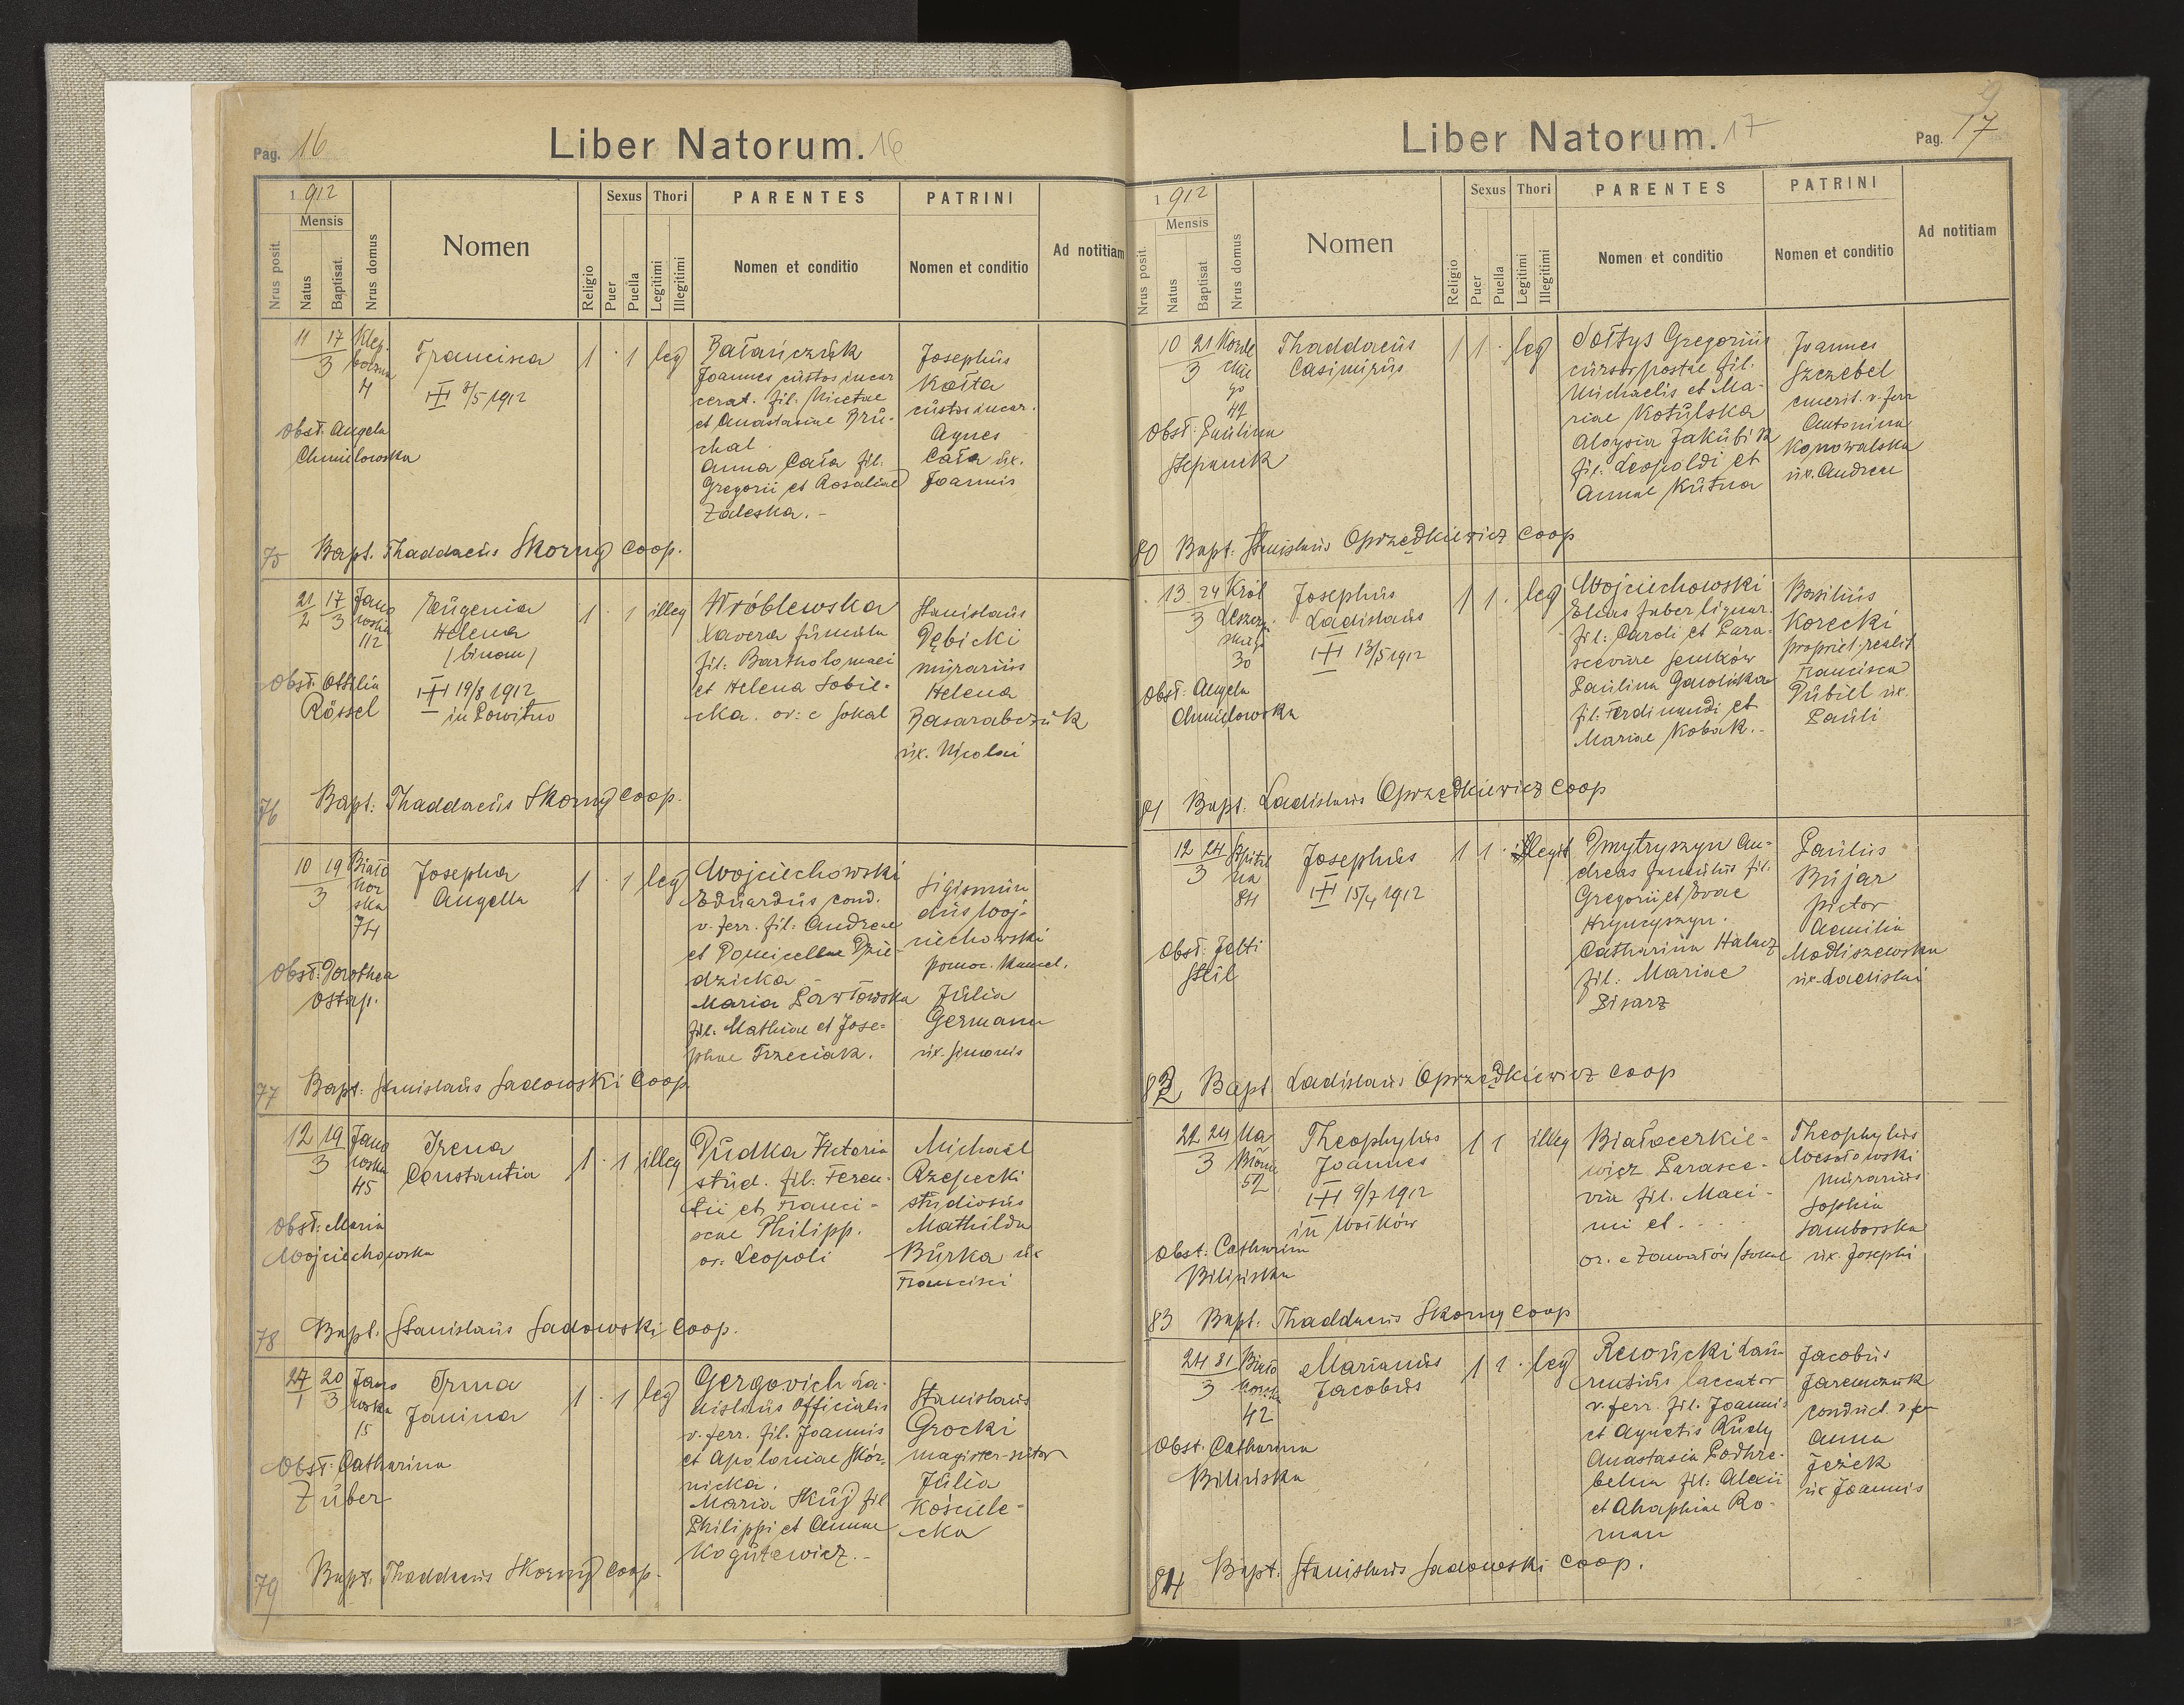 Pag. 16
Liber Natorum. 16
1912
Mensis
Nrus posit.
Natus
Baptisat.
Nrus domus
Nomen
Religio
Sexus
Puer
Puella
Thori
Legitimi
Illegitimi
PARENTES
Nomen et conditio
PATRINI
Nomen et conditio
Ad notitiam
11 17
3
4
Francisca
8/5 1912
1 · 1 leg
Batańczuk
Joannes custos incar
cerat. fil. Nicetae
et Anastasiae Bru-
chal
Anna Cała fil.
Gregorii et Rosaliae
Zaleska.-
Josephus
Kołta
custos incar.
Agnes
Cała ux.
Joannis
Obst. Angela
Chmielowska
75 Bapt. Thaddaeus Skorny Coop.
21 17
2 3
Jano
wska
112
Eugenia
Helena
(binom)
19/8 1912
1 · 1 illeg
Wróblewska
Xavera famula
fil: Bartholomaei
et Helena Sobie-
cka. or: e Sokal
Stanislaus
Dębicki
murarius
Helena
Basarabczuk
ux. Nicolai
Obst. Ottilia
Rössel
76 Bapt: Thaddaeus Skorny Coop.
10 19
3
Biało
hor
ska
74
Josepha
Angella
1 · 1 leg
Wojciechowski
Eduardus cond.
v. ferr. fil: Andreae
et Domicellae Dzie-
dzicka -
Maria Pawłowska
fil: Mathiae et Jose=
phae Trzeciak.
Sigismun
dus Woj-
ciechowski
pomoc. kancel.
Julia
Germann
ux. Simonis
Obst: Dorothea
Ostap.
77 Bapt: Stanislaus Sadowski Coop
12 19
3
Jano
wska
45
Irena
Constantia
1 · 1 illeg
Dudka Victoria
stud. fil: Feren-
cii et Franci-
scae Philipp.
or: Leopoli
Michael
Rzepecki
studiosus
Mathilda
Burka ux
Francisci
Obst: Maria
Wojciechowska
78 Bapt. Stanislaus Sadowski Coop.
27 20
1 3
Jano
wska
15
Irma
Janina
1 · 1 leg
Gergovich La-
dislaus Officialis
v. ferr. fil. Joannis
et Apoloniae Skór-
nicka.
Maria Skuj fil
Philippi et Annae
Kogutewicz.-
Stanislaus
Grocki
magister-sutor
Julia
Kościele-
cka
Obst: Catharina
Zuber
79 Bapt. Thaddaeus Skorny Coop.
9
Liber Natorum. 17
Pag. 17
1912
Mensis
Nrus posit.
Natus
Baptisat
Nrus domus
Nomen
Religio
Sexus
Puer
Puella
Thori
Legitimi
Illegitimi
PARENTES
Nomen et conditio
PATRINI
Nomen et conditio
Ad notitiam
10 21
3
Thaddaeus
Casimirus
1 1 · leg
Sołtys Gregorius
cursor postae fil.
Michaelis et Ma-
riae Kotulska
Aloysia Jakubik
fil: Leopoldi et
Annae Kutna
Joannes
Szczebel
emerit. v. ferr
Antonina
Konowalska
ux. Andreae
Obst: Paulina
Stepanek
80 Bapt: Stanislaus Oprzędkiewicz Coop
13 24
3
Król
Leszczyń
skiego
30
Josephus
Ladislaus
13/5 1912
1 1 · leg
Wojciechowski
Elias faber lignar.
fil: Caroli et Para-
scevae Senków
Paulina Gawlicka
fil: Ferdinandi et
Mariae Kobak.-
Basilius
Korecki
propriet. realit
Francisca
Dubiel ux.
Pauli
Obst: Angela
Chmielowska
81 Bapt. Ladislaus Oprzędkiewicz Coop
12 24
3
Szpital
na
84
Josephus
15/4 1912
1 1 · illegit
Dmytryszyn An-
dreas famulus fil.
Gregorii et Evae
Hryncyszyn.
Catharina Halacz
fil: Mariae
Pisarz
Paulus
Bujar
pictor
Aemilia
Modliszewska
ux. Ladislai
Obst: Jetti
Steil
82 Bapt Ladislaus Oprzędkiewicz Coop
22 24
3
Na
Błonie
52
Theophylus
Joannes
9/7 1912
1 1 illeg
Białocerkie=
wicz Parasce-
via fil. Maxi-
mi et . . . .
Theophylus
Wesołowski
murarius
Sophia
Samborska
ux. Josephi
Obst: Catharina
Bilińska
83 Bapt: Thaddaeus Skorny Coop
24 31
3
42
Marianus
Jacobus
1 1 · leg
Rewucki Lau-
rentius laccator
v. ferr. fil. Joannis
et Agnetis Kudy
Anastasia Podhre-
belna fil: Alexii
et Ahaphiae Ro-
man
Jacobus
Jaremczuk
conduct. v fer
Anna
Jeżek
ux Joannis
Obst. Catharina
Bilińska
84 Bapt: Stanislaus Sadowski Coop.